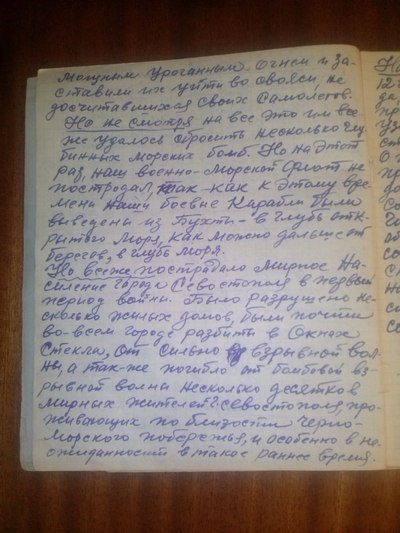 мощным ураганным огнем и за-
ставили их уйти во свояси, не
досчитавшихся своих самолётов.
Но не смотря на все это им все-
же удалось сбросить несколько глу
бинных морских бомб. Но на этот
раз, наш военно-морской флот не
пострадал, так-как к этому вре
мени наши боевые карабли были
выведены из Бухты- в глубь отк-
рытого моря, как можно дальше от
берегов, в глубь моря.
Но все же пострадало мирное на-
селение города Севостополя в первый
период войны. Было разрушено не-
сколько жилых домов, были почти
во-всем городе разбиты в окнах
стекла, от сильно взрывной вол-
ны, а так-же погибло от бомбовой вз-
рывной волны несколько десятков
мирных жителей г. Севостополя, про-
живающих по близости Черно-
морского побережья, и особенно в не-
ожиданности в такое раннее время.